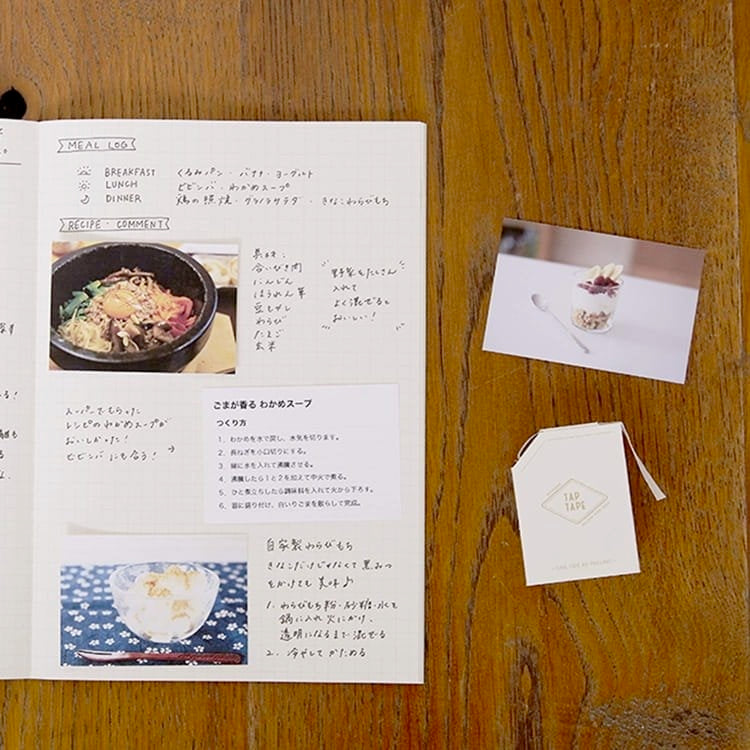 MEAL LOG
BREAKFAST くるみパン・バナナ・ヨーグルト
LUNCH ビビンバ・わかめスープ
DINNER 鶏の照焼・グラノラサラダ・きなこわらびもち
RECIPE・COMMENT
具材:
合いびき肉
にんじん
ほうれん草
豆もやし
わらび
たまご
玄米
野菜をたくさん
入れて
よく混ぜると
おいしい!
スーパーでもらった
レシピのわかめスープが
おいしかった!
ビビンバにも合う!
ごまが香る わかめスープ
つくり方
1、わかめを水で戻し、水気を切ります。
2、長ねぎを小口切りにする。
3、鍋に水を入れて沸騰させる。
4、沸騰したら1と2を加えて中火で煮る。
5、ひと煮立ちしたら調味料を入れて火から下ろす。
6、器に盛り付け、白いりごまを散らして完成。
自家製わらびもち
きなこだけじゃなくて黒みつ
をかけても美味♪
1. わらびもち粉・砂糖・水を
鍋に入れ火にかけ、
透明になるまで混ぜる
2. 冷やしてかためる
TAP
TAPE